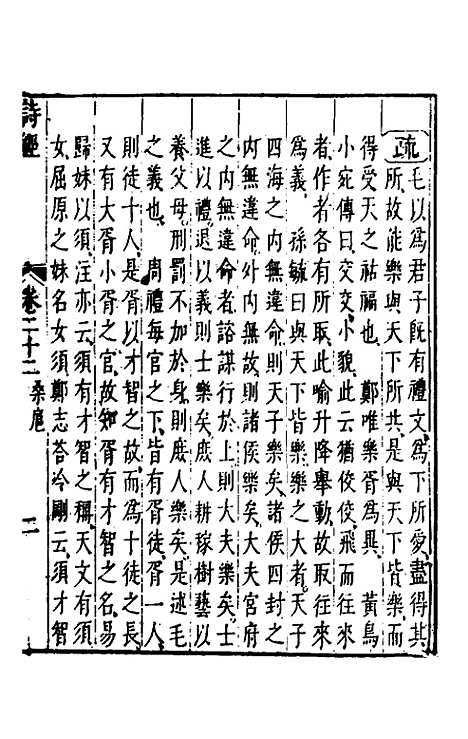 疏毛以爲君子既有禮文爲下所愛盡得其
所故能樂與天下所共是與天下皆樂而
得受天之祜福也 鄭唯樂胥爲異 黃鳥
小宛傳曰交交小貌此云猶佼佼飛而往來
者作者各有所取此喻升降舉動故取往來
爲義 孫毓曰與天下無違命樂之大者天子
四海之内無違命則天子樂矣諸侯四封之
内無違命外内無故則諸侯樂矣大夫官府
之内無違命者諮謀行於上則大夫樂矣士
進以禮退以義則士樂矣庶人耕稼樹藝以
養父母刑罰不加於身則庶人樂矣是述毛
之義也 周禮每官之下皆有胥徒胥一人
則徒十人是胥以才智之故而爲十徒之長
又有大胥小胥之官故知胥有才智之名易
歸妹以須注亦云須有才智之稱天文有須
女屈原之妹名女須鄭志荅泠剛云須才智
詩經 卷二十二 桑扈 二